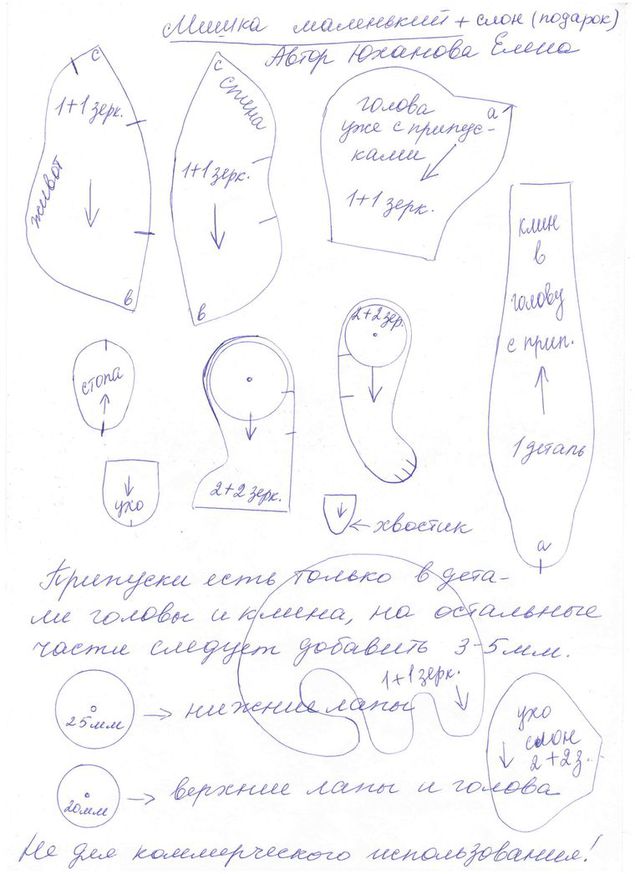 Мишка маленький + слон (подарок)
Автор Юханова Елена
с
1+1 зерк.
живот
в
с
спина
1+1 зерк.
в
голова
уже с припус-
ками
а
1+1 зерк.
клин
в
голову
с прип.
1 деталь
а
стопа
2+2 зерк.
2+2 зер.
ухо
хвостик
Припуски есть только в дета-
ли головы и клина, на остальные
части следует добавить 3-5мм.
1+1 зерк.
25мм → нижние лапы
ухо
слон
2+2з.
20мм → верхние лапы и голова
Не для коммерческого использования!